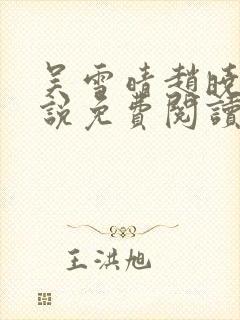 吴雪晴趙曉
說免費閱讀
王洪旭